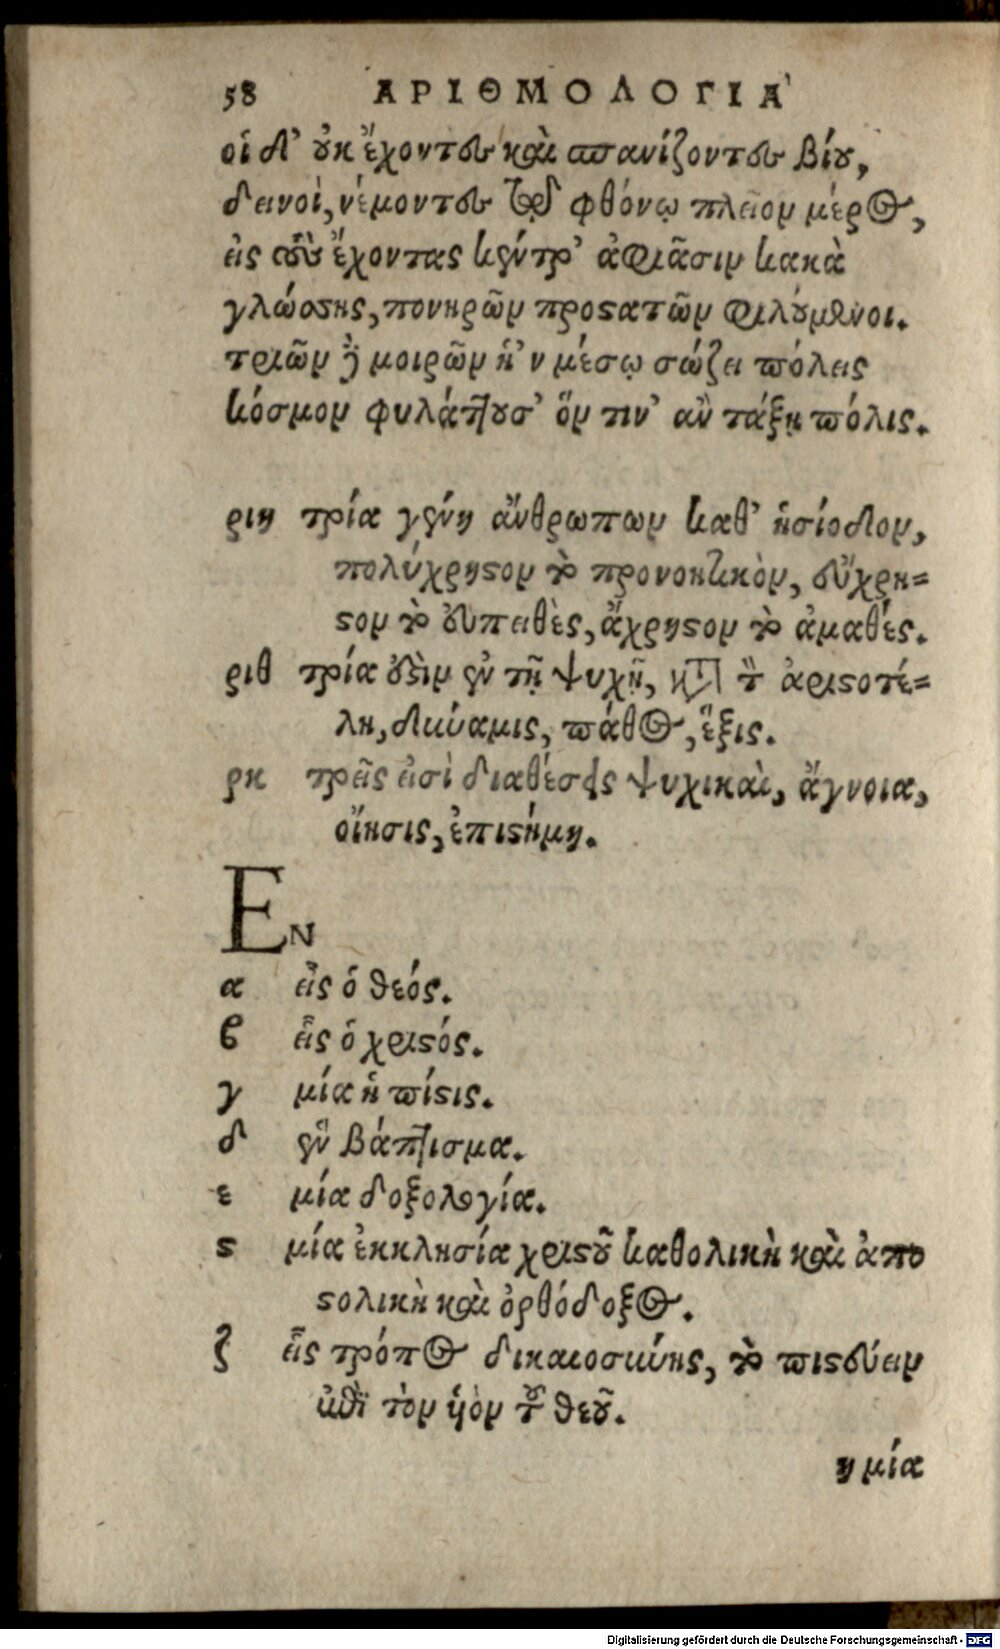 58 ΑΡΙΘΜΟΛΟΓΙΑ
οἱ δ' οὐκ ἔχοντες καὶ σπανίζοντες βίου,
δεινοὶ, νέμοντες τῷ φθόνῳ πλεῖον μέρος,
εἰς τοὺς ἔχοντας κέντρ' ἀφιᾶσιν κακὰ
γλώσσης, πονηρῶν προστατῶν φιλούμενοι.
τριῶν δὲ μοιρῶν ἡ 'ν μέσῳ σώζει πόλεις
κόσμον φυλάττουσ' ὅν τιν' ἂν τάξῃ πόλις.
ριη τρία γένη ἄνθρωπων καθ' ἡσίοδον,
πολύχρηστον τὸ προνοητικὸν, εὔχρη-
στον τὸ εὐπειθὲς, ἄχρηστον τὸ ἀμαθές.
ριθ τρία ἐστὶν ἐν τῇ ψυχῇ, κατὰ τὸν ἀριστοτέ-
λη, δύναμις, πάθος, ἕξις.
ρκ τρεῖς εἰσὶ διαθέσεις ψυχικαὶ, ἄγνοια,
οἴησις, ἐπιστήμη.
ΕΝ
α εἷς ὁ θεός.
β εἷς ὁ χριστός.
γ μία ἡ πίστις.
δ ἓν βάπτισμα.
ε μία δοξολογία.
ϛ μία ἐκκλησία χριστοῦ καθολικὴ καὶ ἀπο
στολικὴ καὶ ὀρθόδοξος.
ζ εἷς τρόπος δικαιοσύνης, τὸ πιστεύειν
ἐπὶ τὸν υἱὸν τοῦ θεοῦ.
η μία
Digitalisierung gefördert durch die Deutsche Forschungsgemeinschaft - DFG